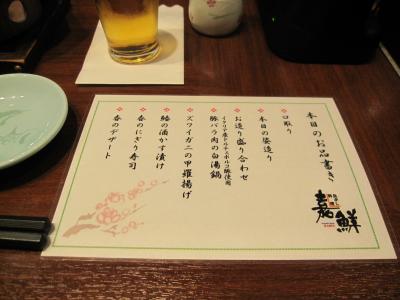 本日のお品書き
口取り
本日の姿造り
お造り盛り合わせ
イタリア産ドルチェポルコ豚使用
豚バラ肉の白湯鍋
ズワイガニの甲羅揚げ
鰆の酒かす漬け
春のにぎり寿司
春のデザート
嘉鮮